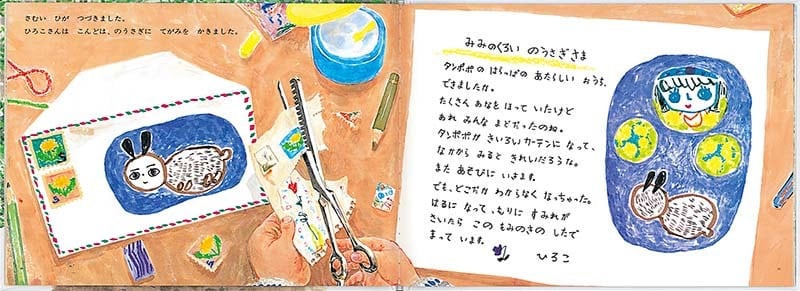 さむい ひが つづきました。
ひろこさんは こんどは、のうさぎに てがみを かきました。
みみのくろい のうさぎさま
タンポポの はらっぱの あたらしい おうち、
できましたか。
たくさん あなを ほって いたけど
あれ みんな まどだったのね。
タンポポが きいろいカーテンに なって、
なかから みると きれいだろうな。
また あそびに いきます。
でも、どこだか わからなく なっちゃった。
はるに なって、もりに すみれが
さいたら この もみのきの したで
まって います。
ひろこ